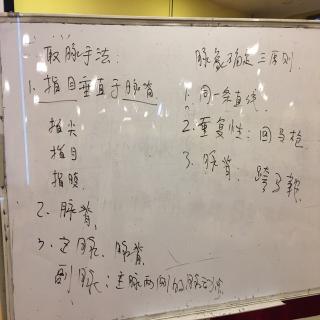 取脉手法:
1. 指目垂直于脉脊
指尖
指目
指腹
2. 脉脊
3. 主脉、脉脊
副脉:主脉两侧的脉
脉象确定三原则.
1. 同一条直线
2. 重复性:回马枪
3. 脉脊:跨马